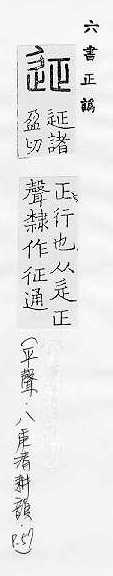 六書正譌
諸
盈切
正行也从辵正
聲隸作征通
(平聲·八庚清耕韻·P.57)